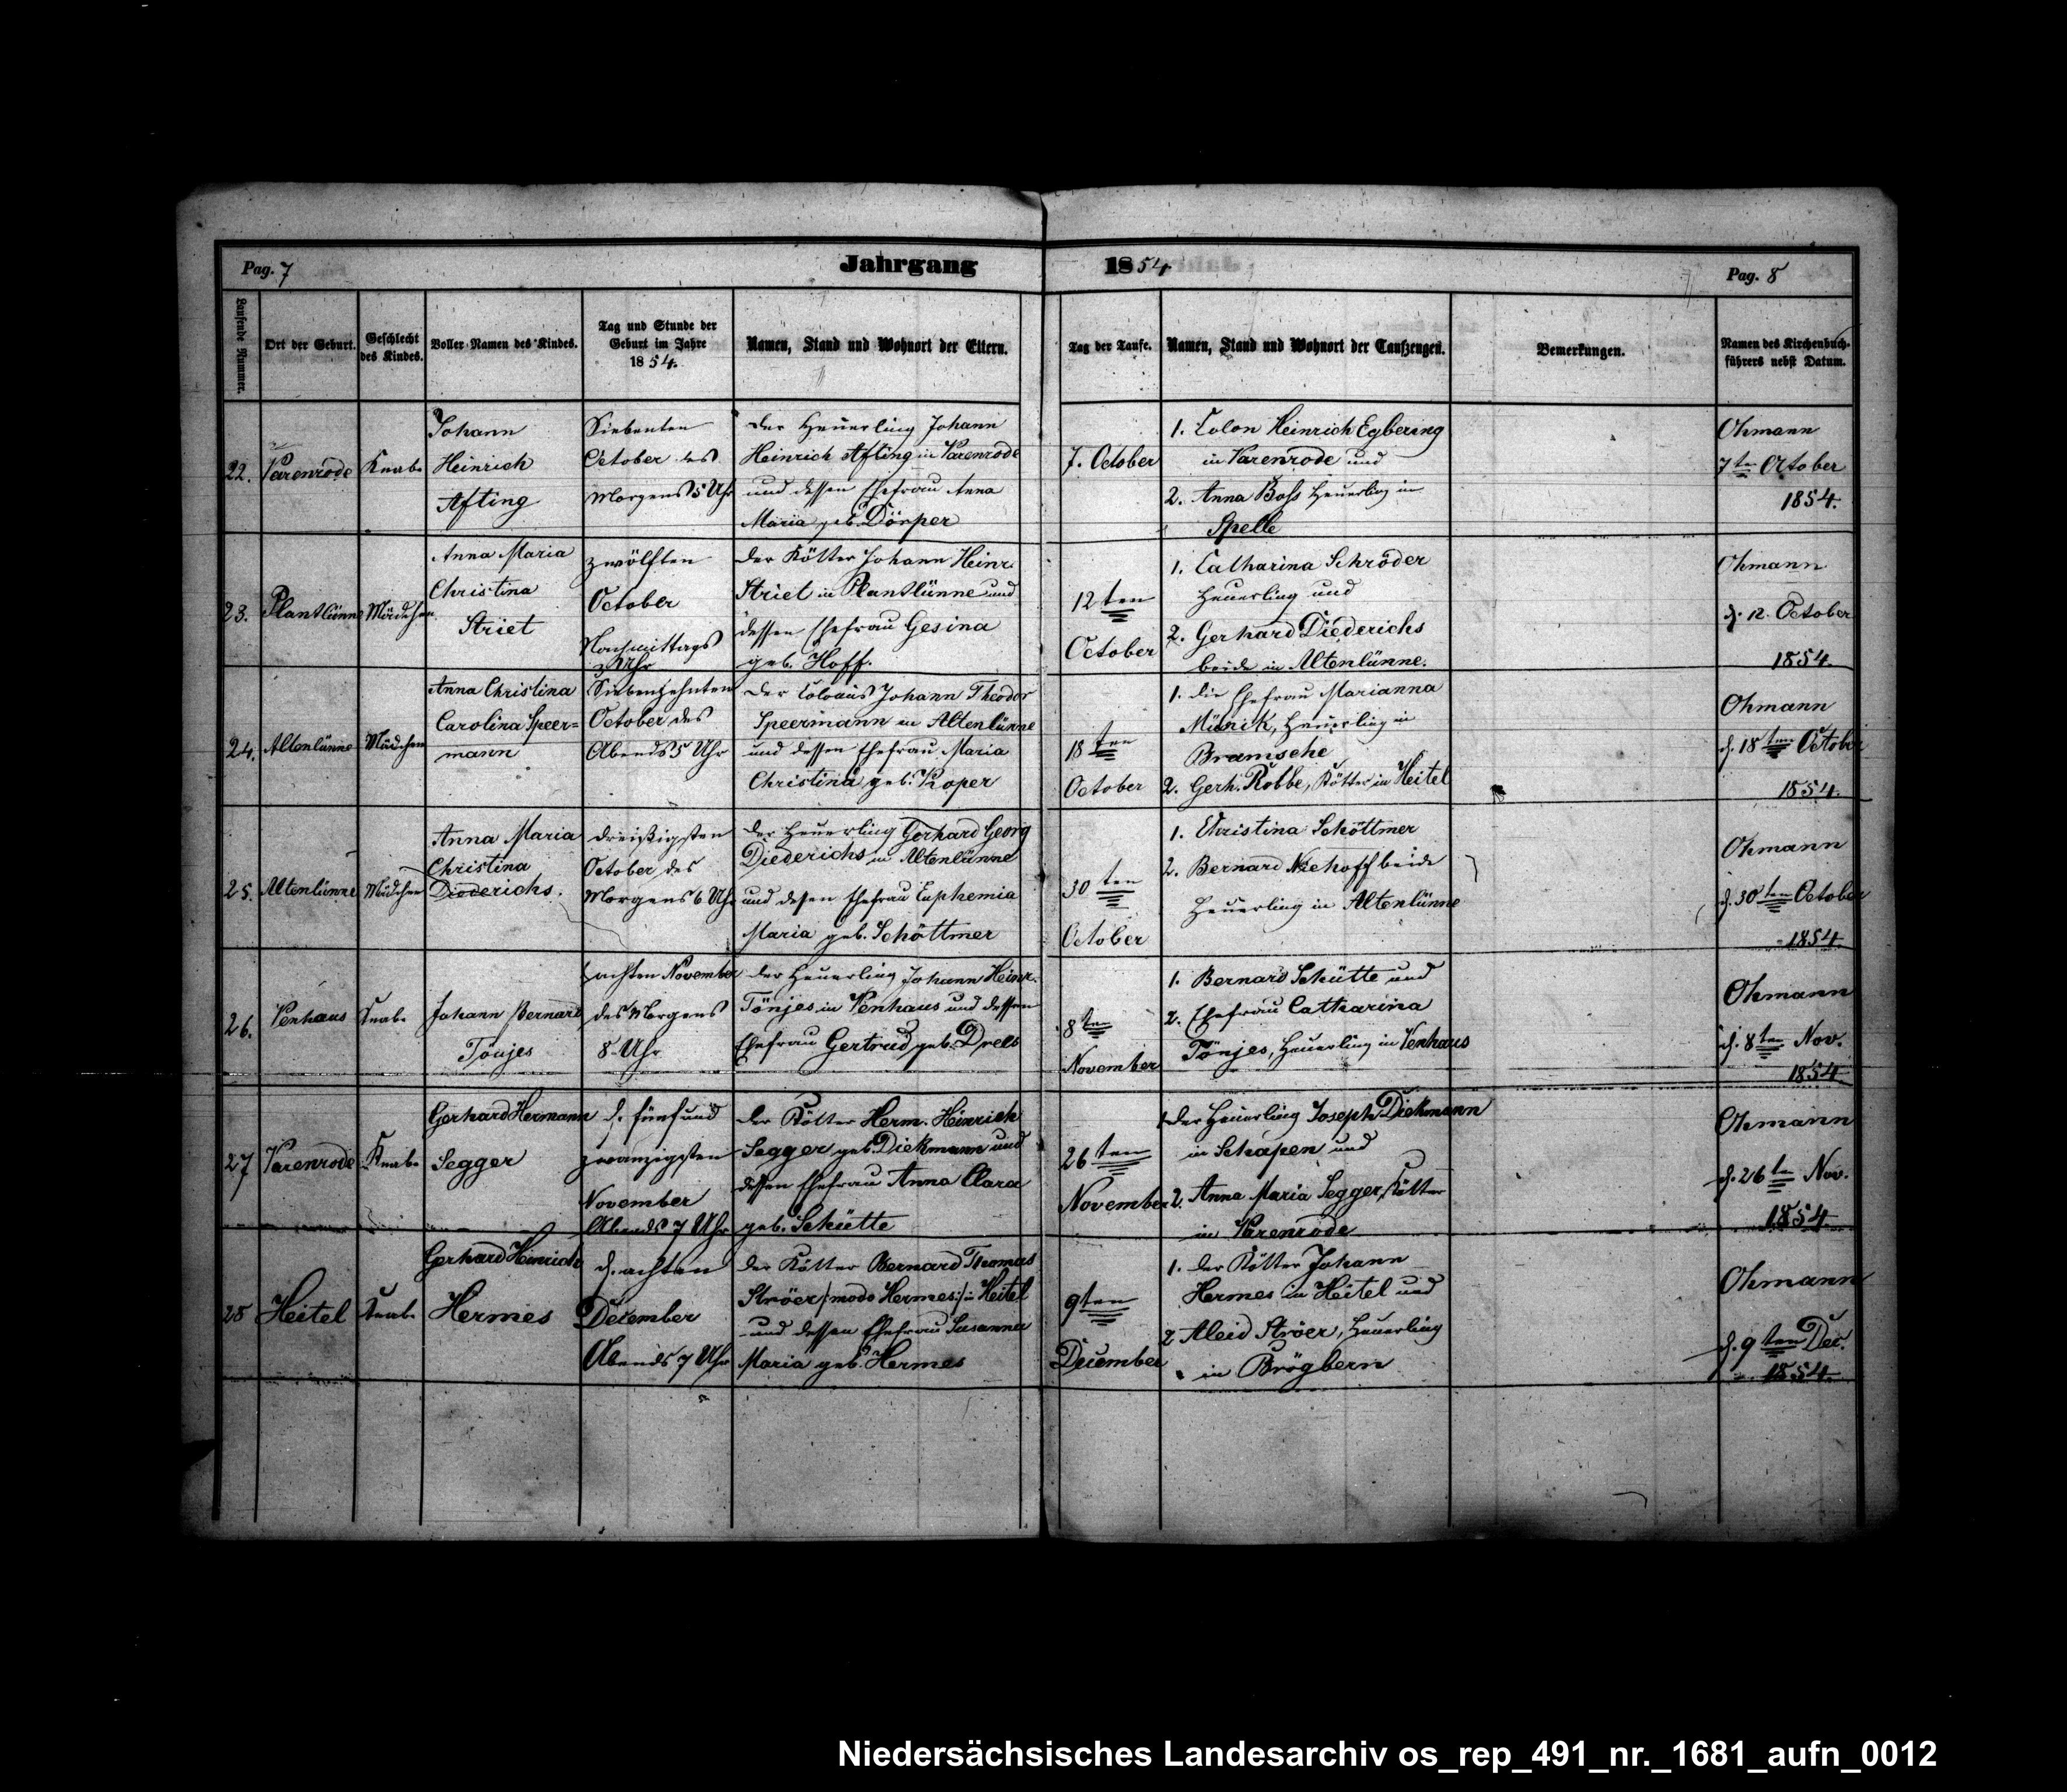 Pag. 7
Jahrgang 1854
Pag. 8
Laufende Nummer.
Ort der Geburt.
Geschlecht
des Kindes.
Voller Namen des Kindes.
Tag und Stunde der
Geburt im Jahre
1854.
Namen, Stand und Wohnort der Eltern.
Tag der Taufe.
Namen, Stand und Wohnort der Taufzeugen.
Bemerkungen.
Namen des Kirchenbuch-
führers nebst Datum.
22.
Varenrode
Knabe
Johann
Heinrich
Afting
Siebenten
October des
Morgens 5 Uhr
der Heuerling Johann
Heinrich Afting in Varenrode
und dessen Ehefrau Anna
Maria geb. Dörper
7. October
1. Colon Heinrich Egbering
in Varenrode und
2. Anna Boss Heuerling in
Spelle
Ohmann
7ten October
1854.
23.
Plantlünne
Mädchen
Anna Maria
Christina
Striet
zwölften
October
Nachmittags
Uhr
der Kötter Johann Heinr.
Striet in Plantlünne und
dessen Ehefrau Gesina
geb. Hoff.
12ten
October
1. Catharina Schröder
Heuerling und
2. Gerhard Diederichs
beide in Altenlünne.
Ohmann
d. 12. October
1854
24.
Altenlünne
Mädchen
Anna Christina
Carolina Speer=
mann
Siebenzehnten
October des
Abends 5 Uhr
der Colonus Johann Theodor
Speermann in Altenlünne
und dessen Ehefrau Maria
Christina geb. Roper
18ten
October
1. die Ehefrau Marianna
Münick, Heuerling in
Bramsche
2. Gerh. Robbe, Kötter in Heitel
Ohmann
d. 18ten October
1854.
25.
Altenlünne
Mädchen
Anna Maria
Christina
Diederichs.
dreißigsten
October des
Morgens 6 Uhr
der Heuerling Gerhard Georg
Diederichs in Altenlünne
und dessen Ehefrau Euphemia
Maria geb. Schöttmer
30ten
October
1. Christina Schöttmer
2. Bernard Niehoff beide
Heuerling in Altenlünne
Ohmann
d. 30ten October
1854.
26.
Venhaus
Knabe
Johann Bernard
Tönjes
achten November
des Morgens
8 Uhr
der Heuerling Johann Heinr.
Tönjes in Venhaus und dessen
Ehefrau Gertrud geb. Drels
8ten
November
1. Bernard Schütte und
2. Ehefrau Catharina
Tönjes, Heuerling in Venhaus
Ohmann
d. 8ten Nov.
1854
27
Varenrode
Knabe
Gerhard Hermann
Segger
d. fünf und
zwanzigsten
November
Abends 7 Uhr
der Kötter Herm. Heinrich
Segger geb. Diekmann und
dessen Ehefrau Anna Clara
geb. Schütte
26ten
November
1. der Heuerling Joseph Diekmann
in Schapen und
2. Anna Maria Segger, Kötter
in Varenrode
Ohmann
d. 26te Nov.
1854.
28
Heitel
Knabe
Gerhard Heinrich
Hermes
d. achten
December
Abends 7 Uhr
der Kötter Bernard Thomas
Ströer /:modo Hermes:/ in Heitel
und dessen Ehefrau Susanna
Maria geb. Hermes
9ten
December
1. der Kötter Johann
Hermes in Heitel und
2 Aleid Ströer, Heuerling
in Brögbern
Ohmann
d. 9ten Dec.
1854.
Niedersächsisches Landesarchiv os_rep_491_nr._1681_aufn_0012